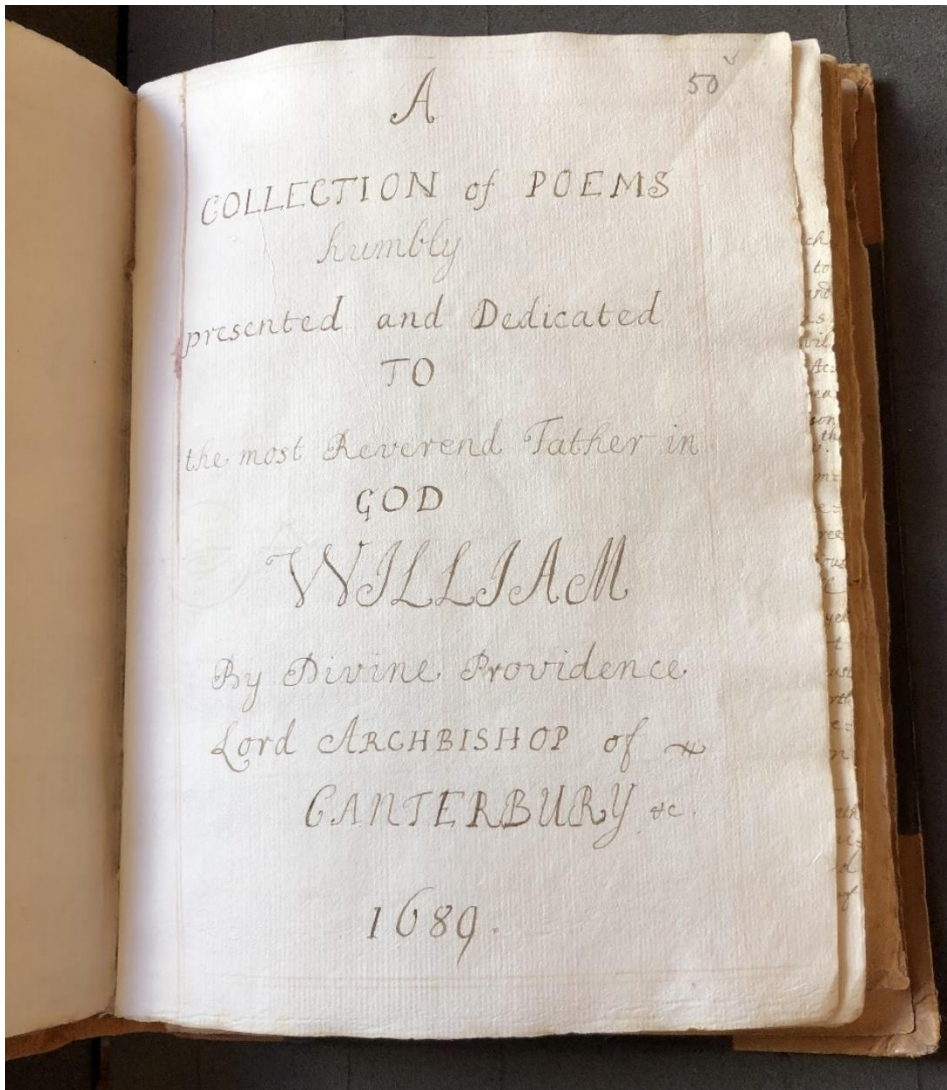 50
A
COLLECTION of POEMS
humbly
presented and Dedicated
TO
the most Reverend Father in
GOD
WILLIAM
By Divine Providence
Lord ARCHBISHOP of
CANTERBURY &c.
1689.